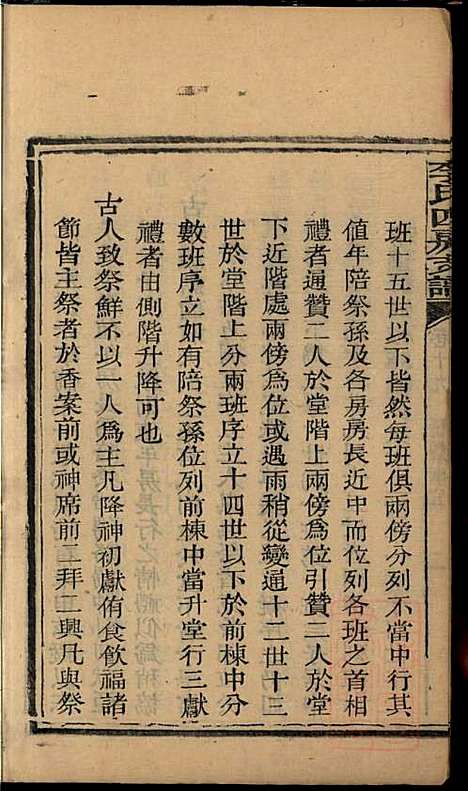 李氏四房支譜
班十五世以下皆然每班俱兩傍分列不當中行其
值年陪祭孫及各房房長近中而位列各班之首相
禮者通贊二人於堂階上兩傍爲位引贊二人於堂
下近階處兩傍爲位或遇雨稍從變通十二世十三
世於堂階上分兩班序立十四世以下於前棟中分
數班序立如有陪祭孫位列前棟中當升堂行三獻
禮者由側階升降可也
古人致祭鮮不以一人爲主凡降神初獻侑食飲福諸
節皆主祭者於香案前或神席前二拜二興凡與祭